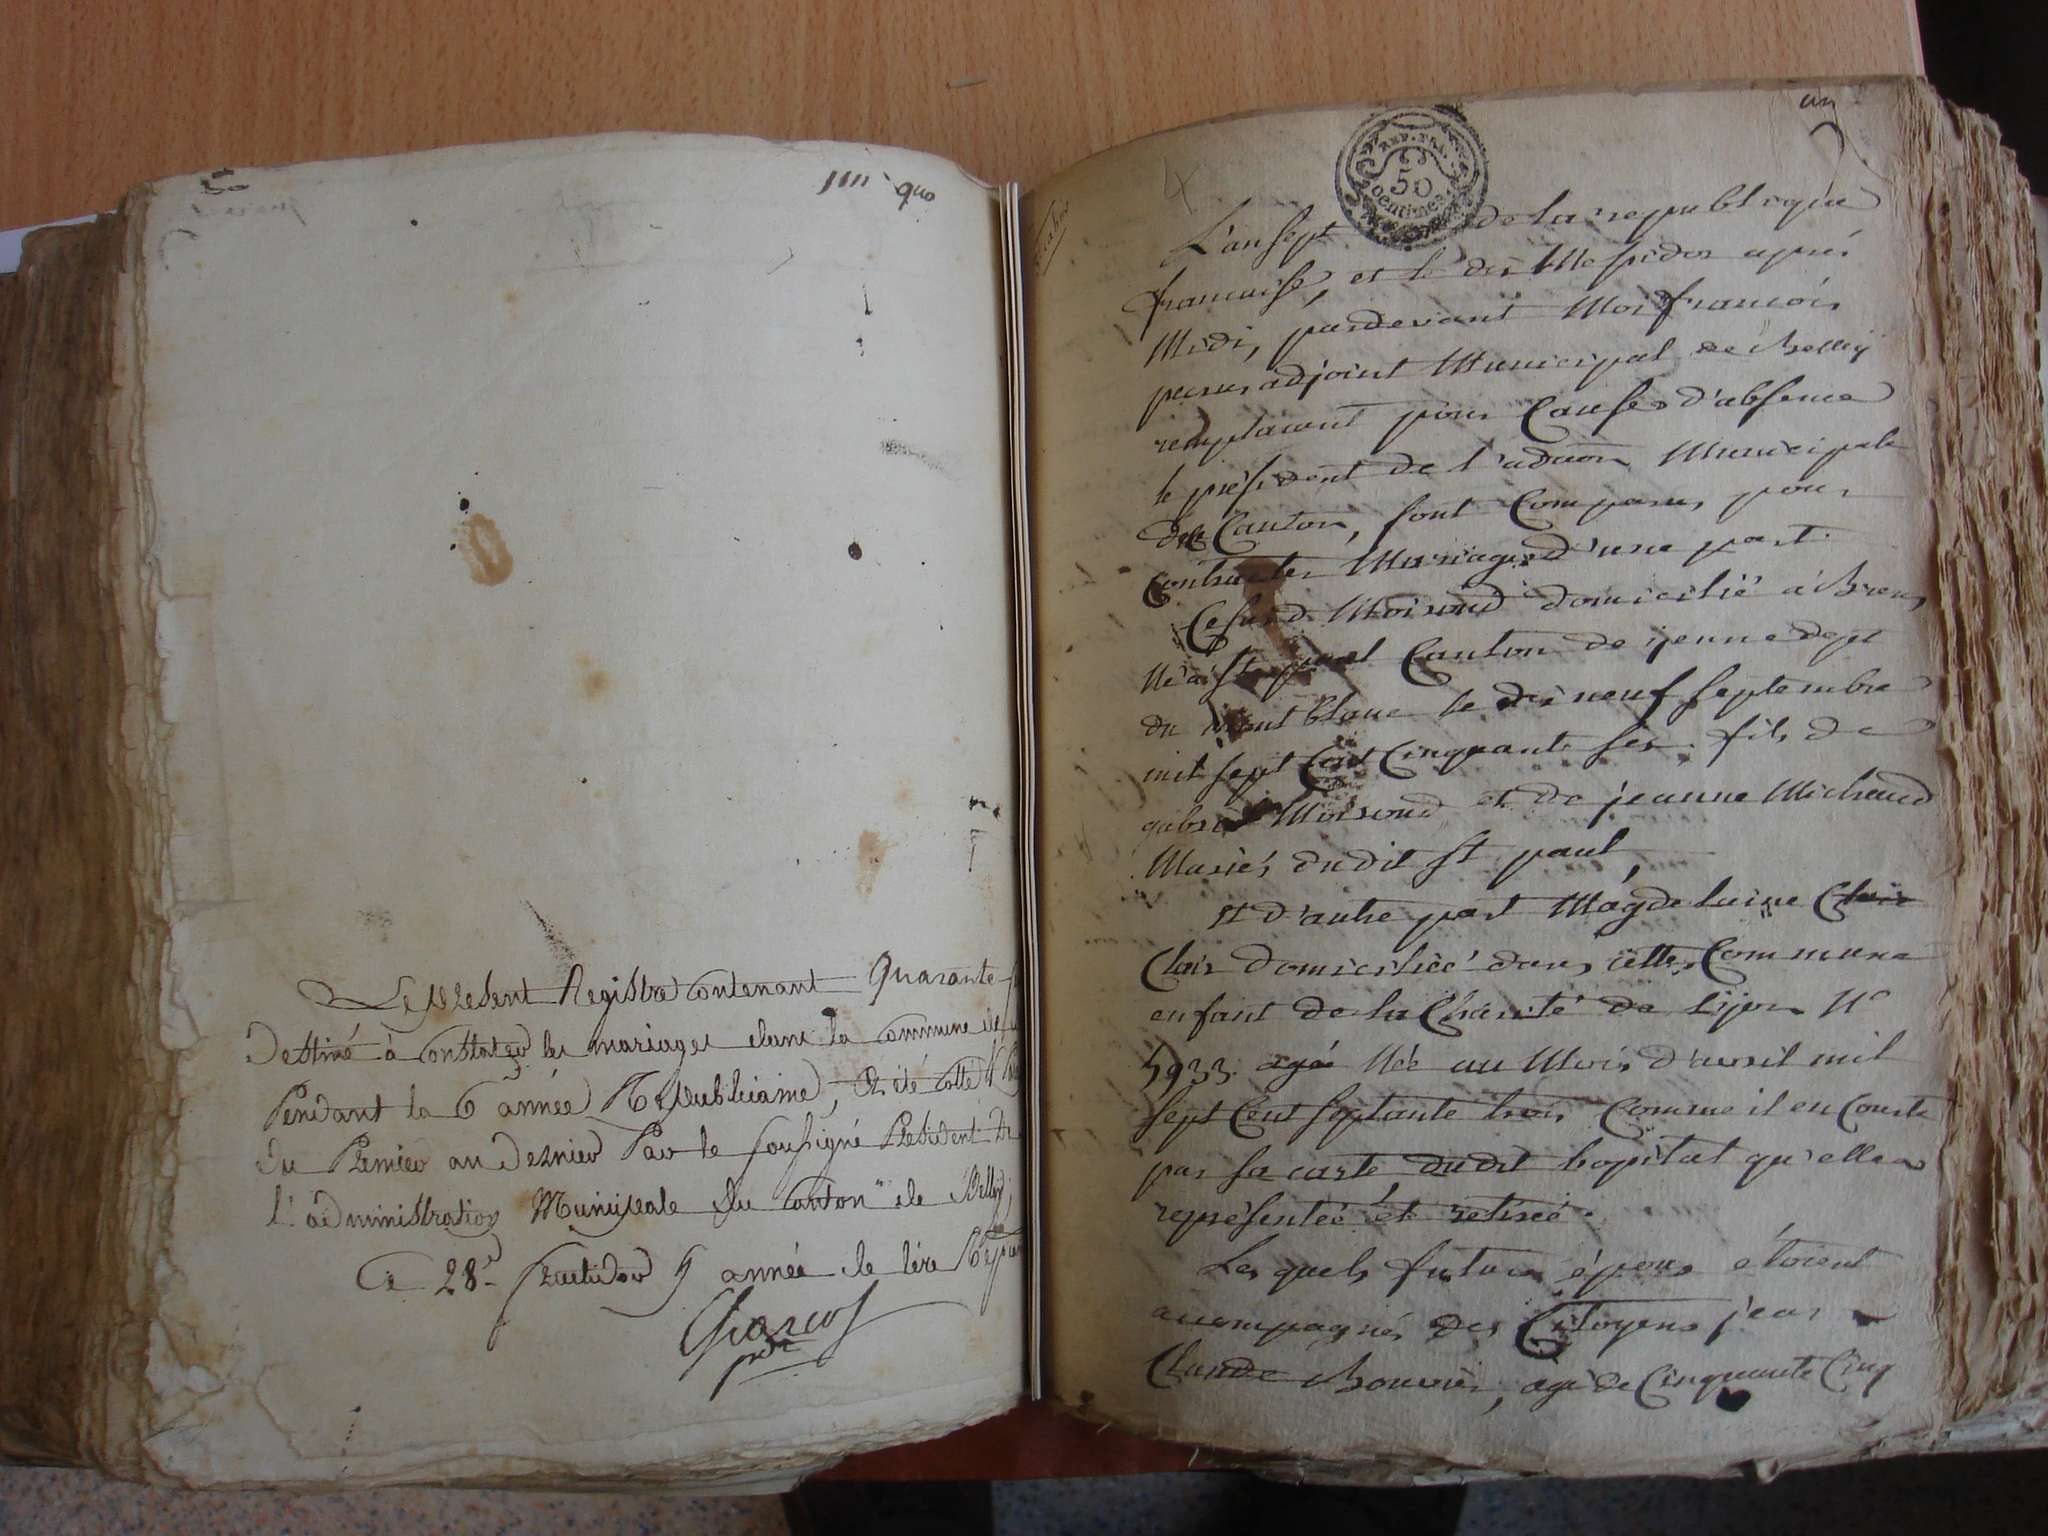 Le présent Registre contenant Quarante
Destiné à constater les mariages dans la commune de
Pendant la 6 année Républicaine, a été cotté
du Premier au Dernier Par le soussigné Président de
l'administration Municipale du canton de Belley
Ce 28e fructidor 5 année de l'ère Répu
un
REP. FRA.
50
centimes
L'an sept de la republique
francaise, et le dix Messidor après
Midi, pardevant Moi francois
adjoint Municipal de Belley
remplacant pour Causes d'absence
le président de l'adōn Municipale
de Canton, sont Comparus pour
Contracter Mariage, d'une part
Moiroud domicilié à Brens
Né à St paul Canton de yenne dept
du mont blanc le dix neuf septembre
mil sept Cent Cinquante six fils de
gabriel Moiroud et de jeanne Michaud
Mariés dudit St paul,
et d'autre part Magdelaine Clair
Clair domiciliée dans cette Commune
enfant de la Charité de Lyon No
5933. agée Née au Mois d'avril mil
sept Cent septante trois Comme il en Conste
par sa carte dudit hopital qu'elle a
représentée et retirée.
Les quels futurs époux étoient
accompagnés des Citoyens jean
Claude Bouvier, agé de Cinquante Cinq